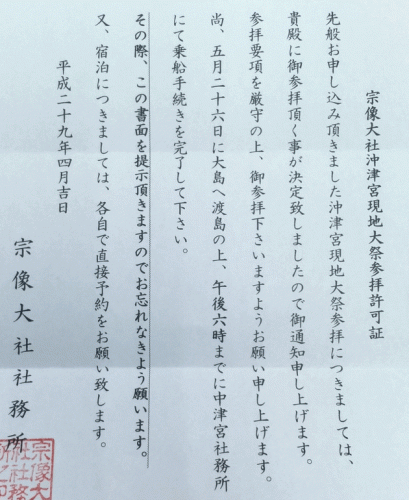 宗像大社沖津宮現地大祭参拝許可証
先般お申し込み頂きました沖津宮現地大祭参拝につきましては、
貴殿に御参拝頂く事が決定致しましたので御通知申し上げます。
参拝要項を厳守の上、御参拝下さいますようお願い申し上げます。
尚、五月二十六日に大島へ渡島の上、午後六時までに中津宮社務所
にて乗船手続きを完了して下さい。
その際、この書面を提示頂きますのでお忘れなきよう願います。
又、宿泊につきましては、各自で直接予約をお願い致します。
平成二十九年四月吉日
宗像大社社務所
宗像大
社社務